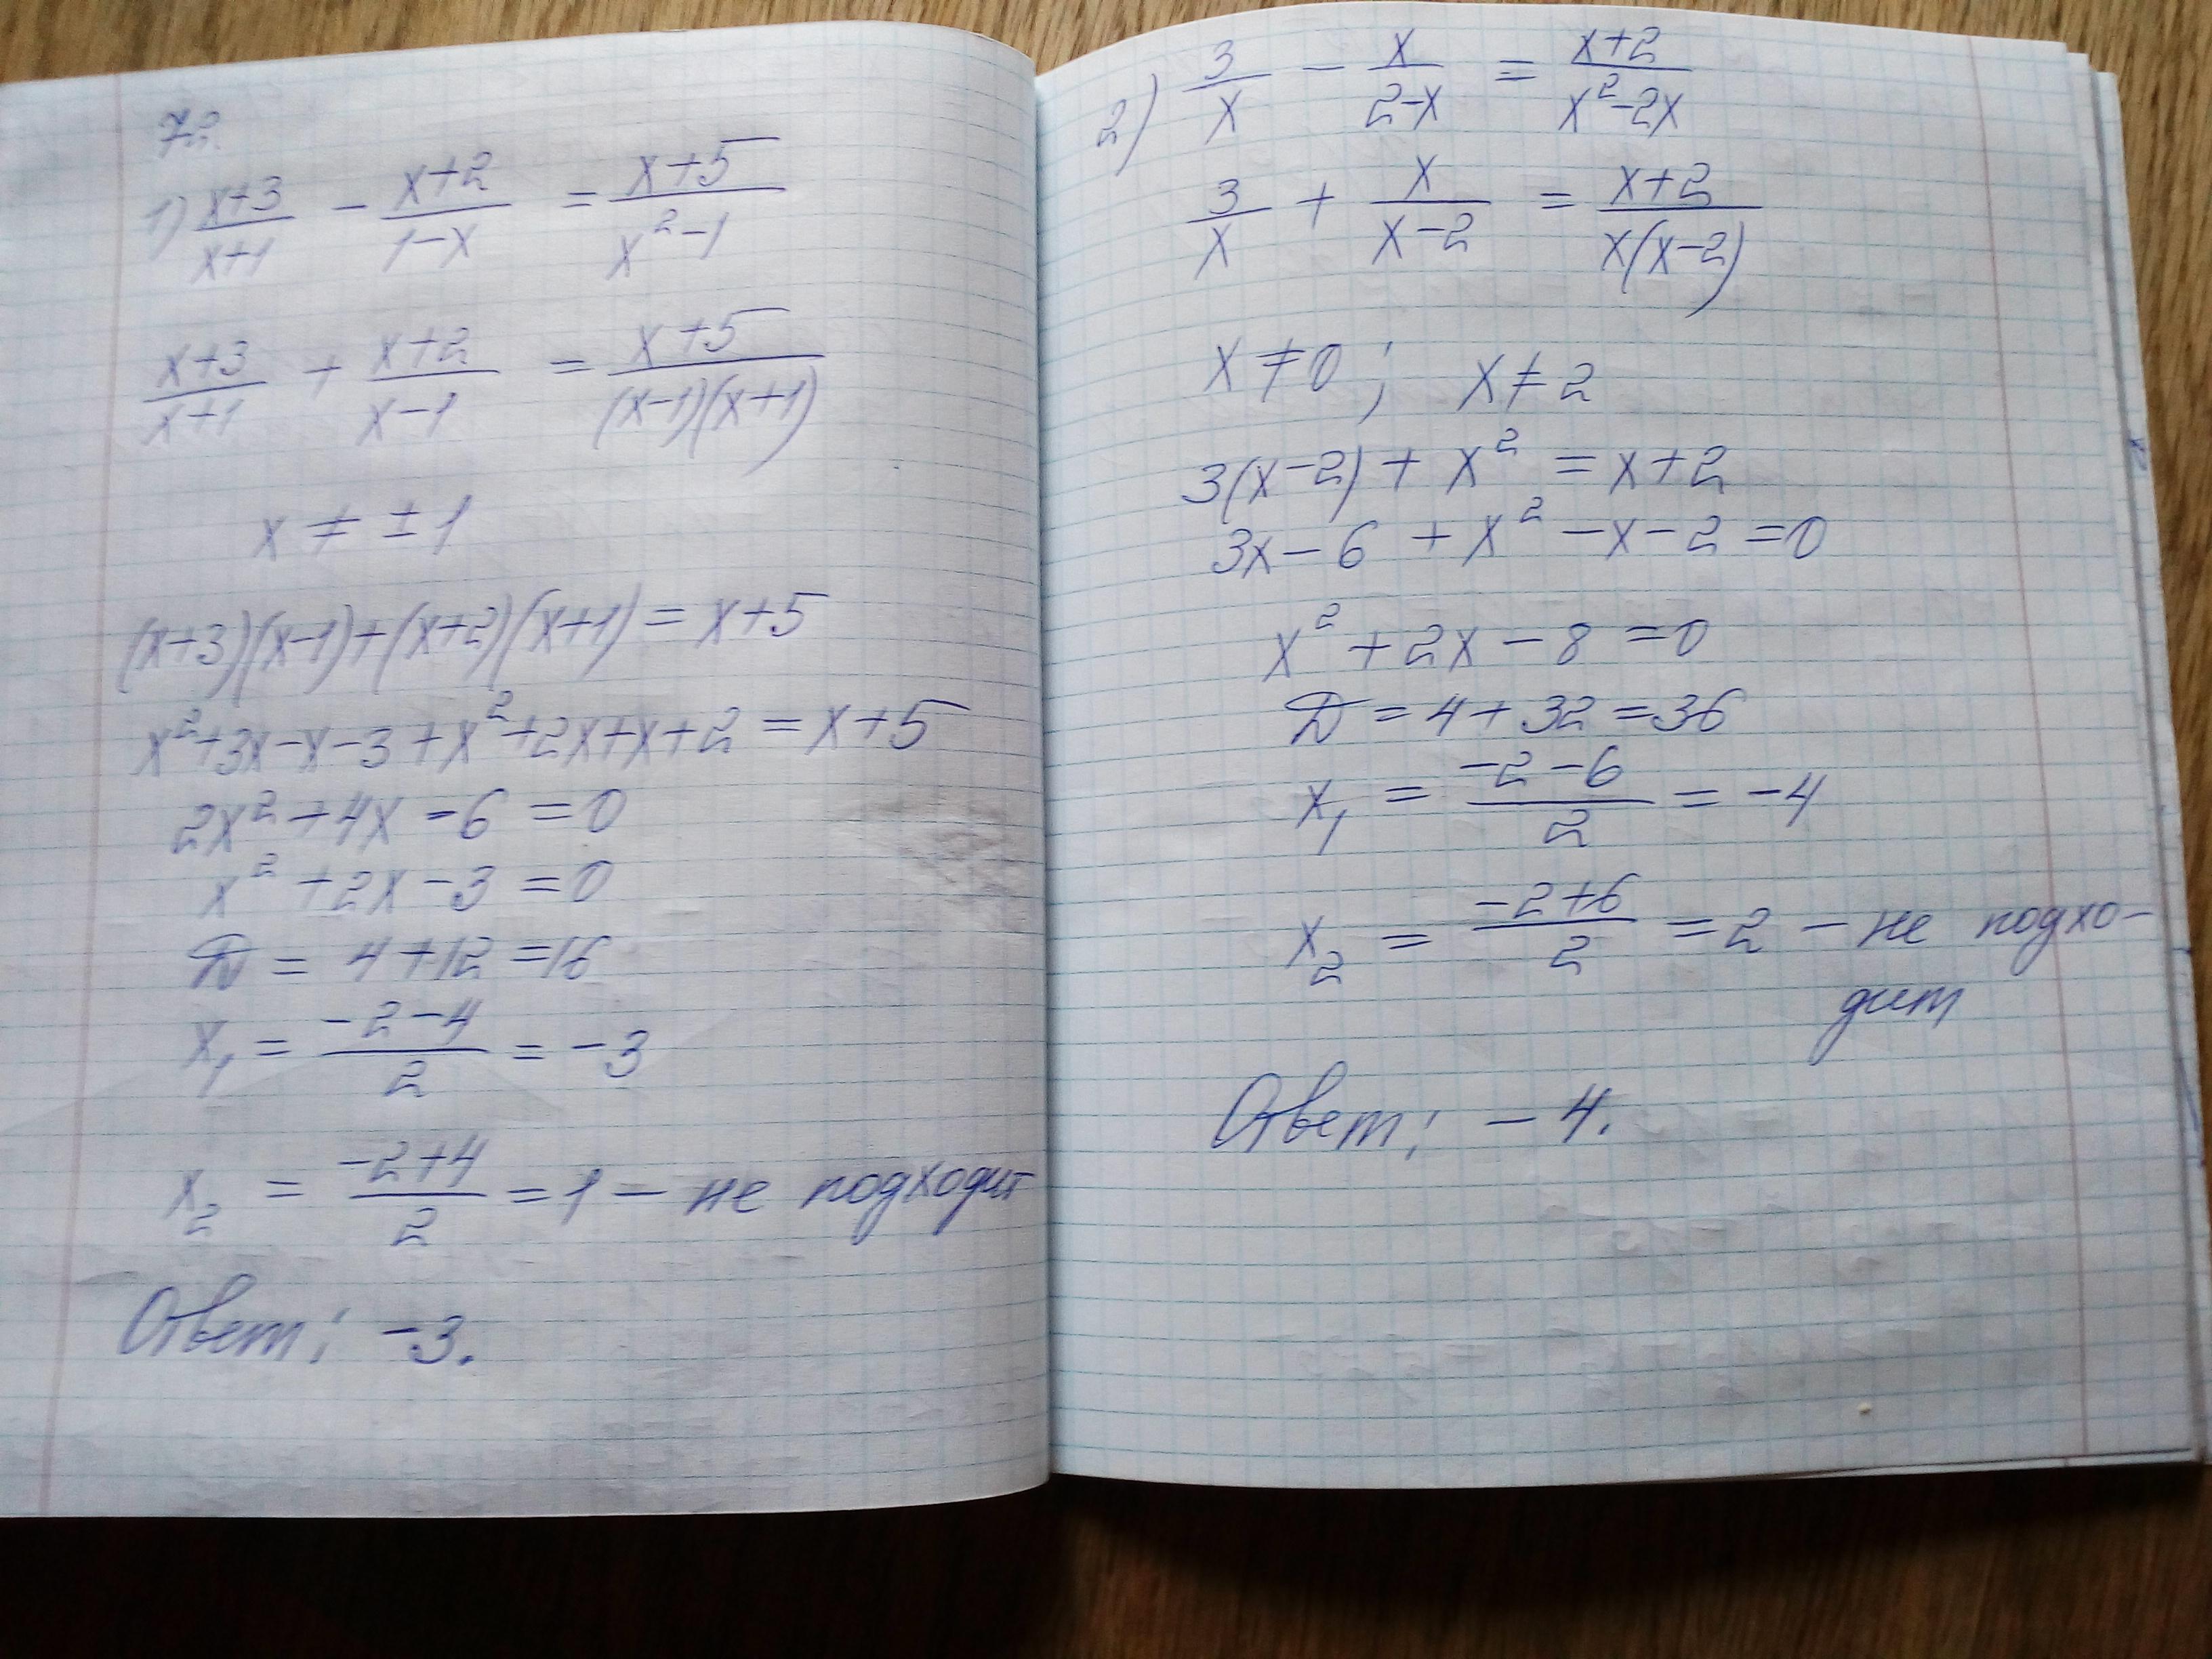 72.
1) (x+3)/(x+1) - (x+2)/(1-x) = (x+5)/(x²-1)
(x+3)/(x+1) + (x+2)/(x-1) = (x+5)/((x-1)(x+1))
x ≠ ±1
(x+3)(x-1)+(x+2)(x+1) = x+5
x²+3x-x-3+x²+2x+x+2 = x+5
2x²+4x-6=0
x²+2x-3=0
D = 4+12=16
x₁ = (-2-4)/2 = -3
x₂ = (-2+4)/2 = 1 - не подходит
Ответ: -3.
2) 3/x - x/(2-x) = (x+2)/(x²-2x)
3/x + x/(x-2) = (x+2)/(x(x-2))
x≠0; x≠2
3(x-2)+x²=x+2
3x-6+x²-x-2=0
x²+2x-8=0
D=4+32=36
x₁ = (-2-6)/2 = -4
x₂ = (-2+6)/2 = 2 - не подхо-
дит
Ответ: -4.